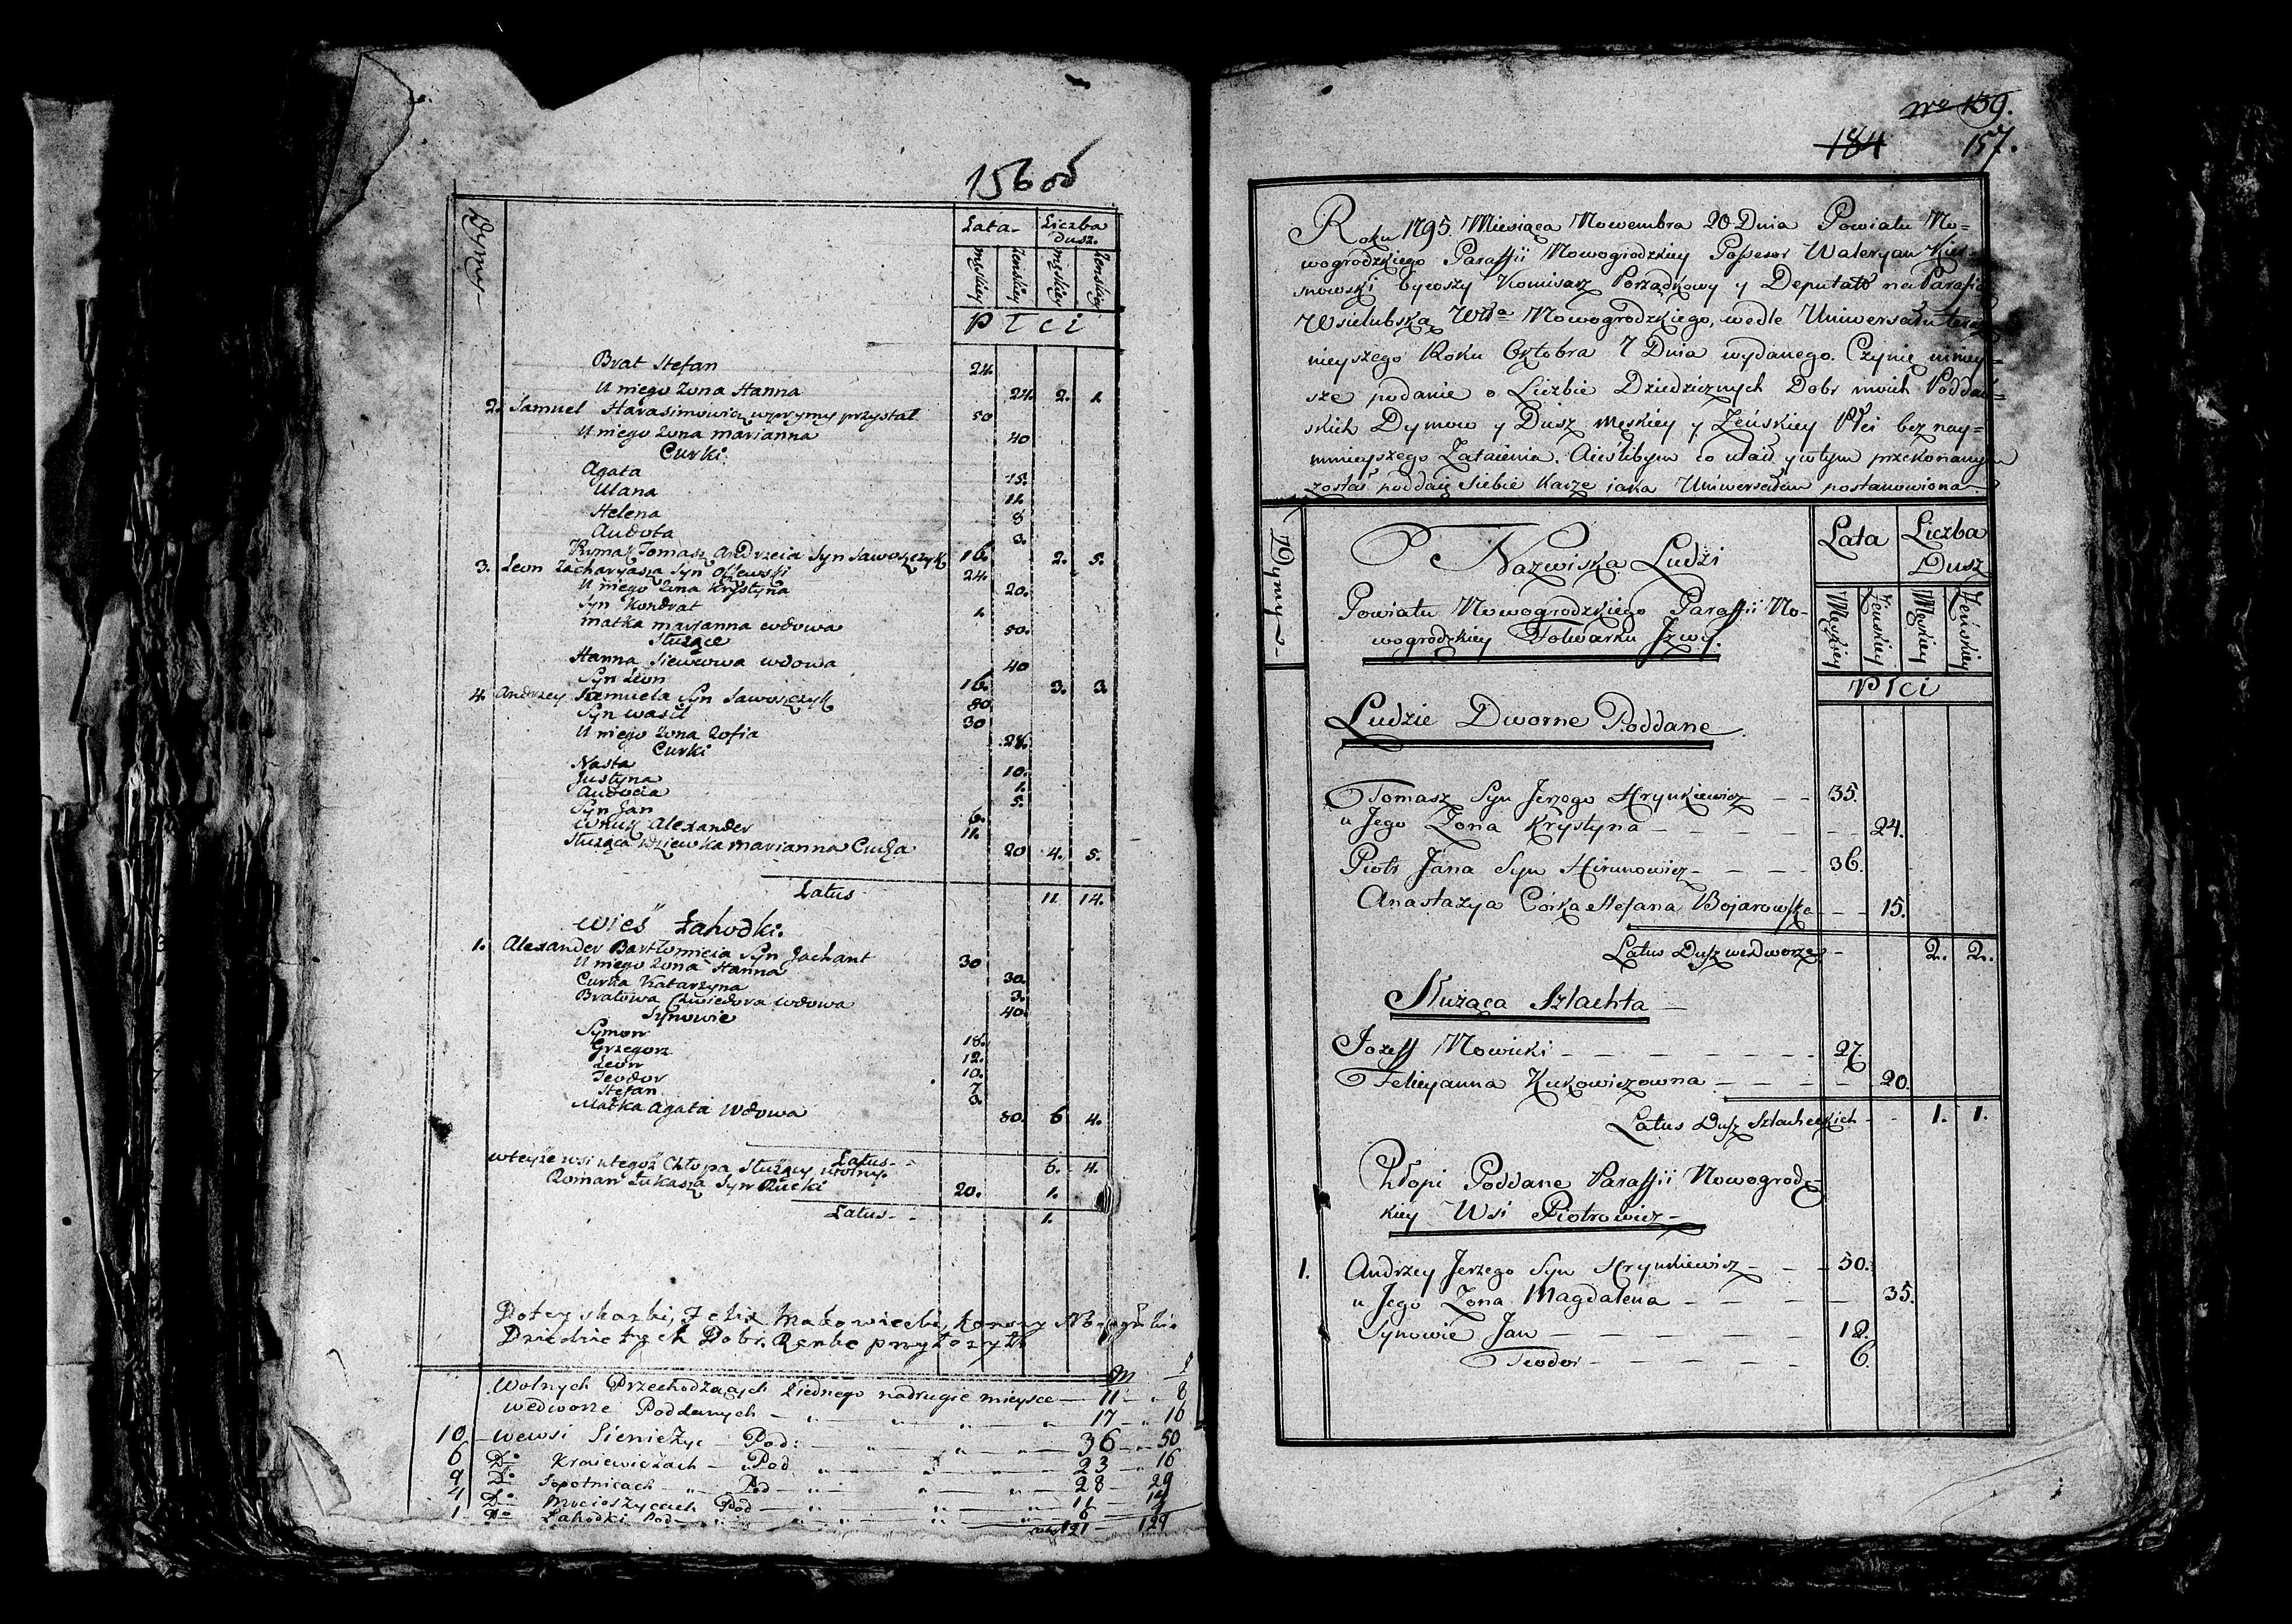 156 об
Dymy
Lata
Liczba dusz.
męskiey
żenskiey
męskiey
żenskiey
Płci
Brat Stefan 24.
U niego żona Hanna 24. 2. 1.
2. Samuel Harasimowicz wprzymy przystał 50
U niego żona marianna 40
Curki.
Agata 15.
Ulana 11.
Helena 8
Audota 3.
Tomasz Andrzeia Syn Sawoszczyk 16. 2. 5.
3. Leon Zacharyasza Syn 24.
U niego żona Krystyna 20.
Syn Kondrat 1.
matka marianna wdowa 50.
Służące
Hanna wdowa 40
Syn Leon 16. 3. 3.
4. Andrzey Samuela Syn Sawoszczyk 80
Syn wasil 30
U niego żona Zofia 28.
Curki
Nasta 10.
Justyna 1.
Audocia 5.
Syn Jan 6.
wnuk Alexander 11.
Służąca dziewka marianna 20 4. 5.
Latus 11 14.
wieś Łahodki.
1. Alexander Bartłomieia Syn Jachant 30
U niego żona Hanna 30.
Curka Katarzyna 3.
Bratowa Chwiedora wdowa 40.
Synowie
Symon 18.
Grzegorz 12.
Leon 10.
Teodor 7
Stefan 3.
Matka Agata Wdowa 80. 6 4.
Latus 6. 4.
wteyże wsi utegoż Chłopa służący wolny.
Roman Łukasza Syn Rucki 20. 1.
Latus 1.
Dziedzic tych Dobr. Renke
m
Wolnych Przechodzących ziednego nadrugie mieysce 11 8
wedworze Poddanych 17 16
10 wewsi Sieniezyc Pod: 36 50
6 Do Pod 23 16
9 Do Sopotnicach Pod 28 29
4 Do Pod 11 14
1 Do Łahodki Pod 6 4
121 129
no 139.
184 157.
Roku 1795 Miesiąca Nowembra 20 Dnia Powiatu No=
wogrodzkiego Paraffii Nowogrodzkiey Possesor Waleryan Kier=
snowski bywszy Komisarz Porządkowy y Deputat na Parafią
Wsielubską Wda Nowogrodzkiego, wedle Uniwersału teraz
nieyszego Roku Oktobra 7 Dnia wydanego. Czynię niniey=
sze podanie o Liczbie Dziedzicznych Dobr moich Poddań=
skich Dymow y Dusz męskiey y żeńskiey Płci bez nay=
mnieyszego Zataienia. Aieślibym co utaił y wtym przekonanym
został poddaię siebie karze iaka Uniwersałem postanowiona
Dymy
Nazwiska Ludzi
Powiatu Nowogrodzkiego Paraffii No-
wogrodzkiey Folwarku Jzwy.
Lata
Liczba Dusz
Męskiey
Żeńskiey
Męskiey
Żeńskiey
Płci
Ludzie Dworne Poddane
Tomasz Syn Jerzego Hrynkiewicz 35.
u Jego Żona Krystyna 24.
Piotr Jana Syn Hirunowicz 36.
Anastazya Córka Stefana Bojarowska 15.
Latus Dusz wedworze 2. 2.
Służąca Szlachta
Jozeff Nowicki 27
Felicyanna Kukowiczowna 20.
Latus Dusz Szlacheckich 1. 1.
Chłopi Poddane Paraffii Nowogrodz=
kiey Wsi Piotrowicz
1. Andrzey Jerzego Syn Hrynkiewicz 50.
u Jego Żona Magdalena 35.
Synowie Jan 12.
Teodor 6.